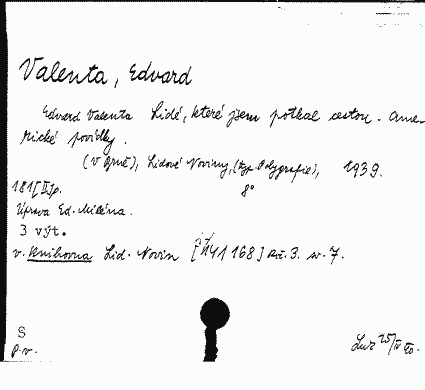 Valenta, Edvard
Edvard Valenta Lidé, které jsem potkal cestou. Ame-
rické povídky.
(V Brně), Lidové Noviny, (typ. Polygrafie), 1939.
181[II]p. 8°
Úprava Ed. Miléna.
3 výt.
v. Knihovna Lid. Novin [ 141168] Roč. 3. sv. 7.
S
p.v.
25/IV 50.